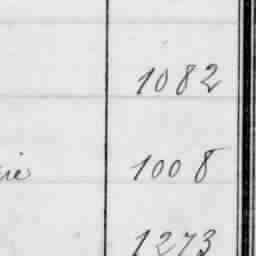 1082
1008
1273